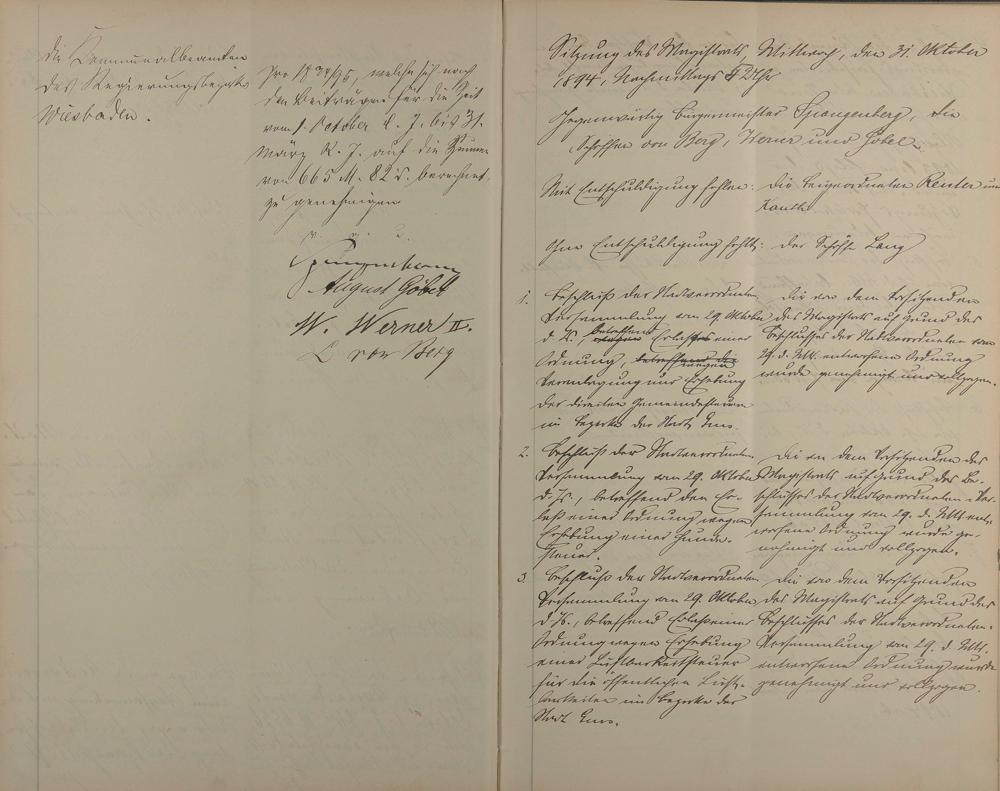 die Communalbeamten
des Regierungsbezirks
Wiesbaden.
pro 1894/95, welche sich nach
den Beiträgen für die Zeit
vom 1. October l. J. bis 31.
März k. J. auf die Summe
von 665 M. 82 berechnet,
zu genehmigen
v. g. u.
Spangenberg
August Göbel
W. Werner II.
L von Berg
Sitzung des Magistrats Mittwoch, den 31. Oktober
1894, Nachmittags 2 Uhr
Gegenwärtig Bürgermeister Spangenberg, die
Schöffen von Berg, Werner und Göbel.
Mit Entschuldigung fehlen: die Beigeordneten Reuter und
Ohne Entschuldigung fehlt: der Schöffe Lang
1. Beschluß der Stadtverordneten
Versammlung vom 29. Oktober
d Js., betreffend Erlaß einer
Ordnung, betreffend die
Veranlagung und Erhebung
der direkten Gemeindesteuern
im Bezirke der Stadt Ems.
Die von dem Vorsitzenden
des Magistrats auf Grund des
Beschlusses der Stadtverordneten vom
29. d. Mts. entworfene Ordnung
wurde genehmigt und vollzogen.
2. Beschluß der Stadtverordneten
Versammlung vom 29. Oktober
d. Js., betreffend den Er-
laß einer Ordnung wegen
Erhebung einer Hunde-
steuer.
Die von dem Vorsitzenden des
Magistrats auf Grund des Be-
schlusses der Stadtverordneten-Ver-
sammlung vom 29. d. Mts ent-
worfene Ordnung wurde ge-
nehmigt und vollzogen.
3. Beschluß der Stadtverordneten
Versammlung vom 29. Oktober
d Js., betreffend Erlaß einer
Ordnung wegen Erhebung
einer Lustbarkeitssteuer
für die öffentlichen Lust-
barkeiten im Bezirke der
Stadt Ems.
Die von dem Vorsitzenden
des Magistrats auf Grund des
Beschlusses der Stadtverordneten-
Versammlung vom 29. d Mts.
entworfene Ordnung wurde
genehmigt und vollzogen.